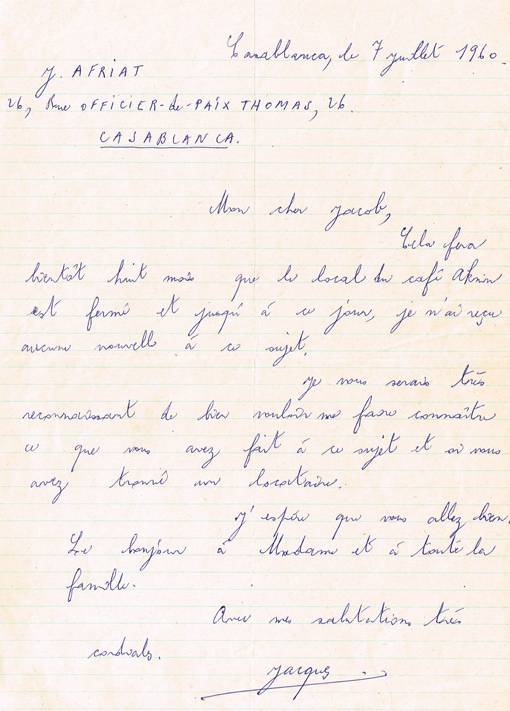 Casablanca, le 7 juillet 1960.
J. AFRIAT
26, Rue OFFICIER-de-PAIX THOMAS, 26.
CASABLANCA.
Mon cher Jacob,
Cela fera
bientôt huit mois que le local du café Aknin
est fermé et jusqu'à ce jour, je n'ai reçu
aucune nouvelle à ce sujet.
Je vous serais très
reconnaissant de bien vouloir me faire connaître
ce que vous avez fait à ce sujet et si vous
avez trouvé un locataire.
J'espère que vous allez bien.
Le bonjour à Madame et à toute la
famille.
Avec mes salutations très
cordiales.
Jacques